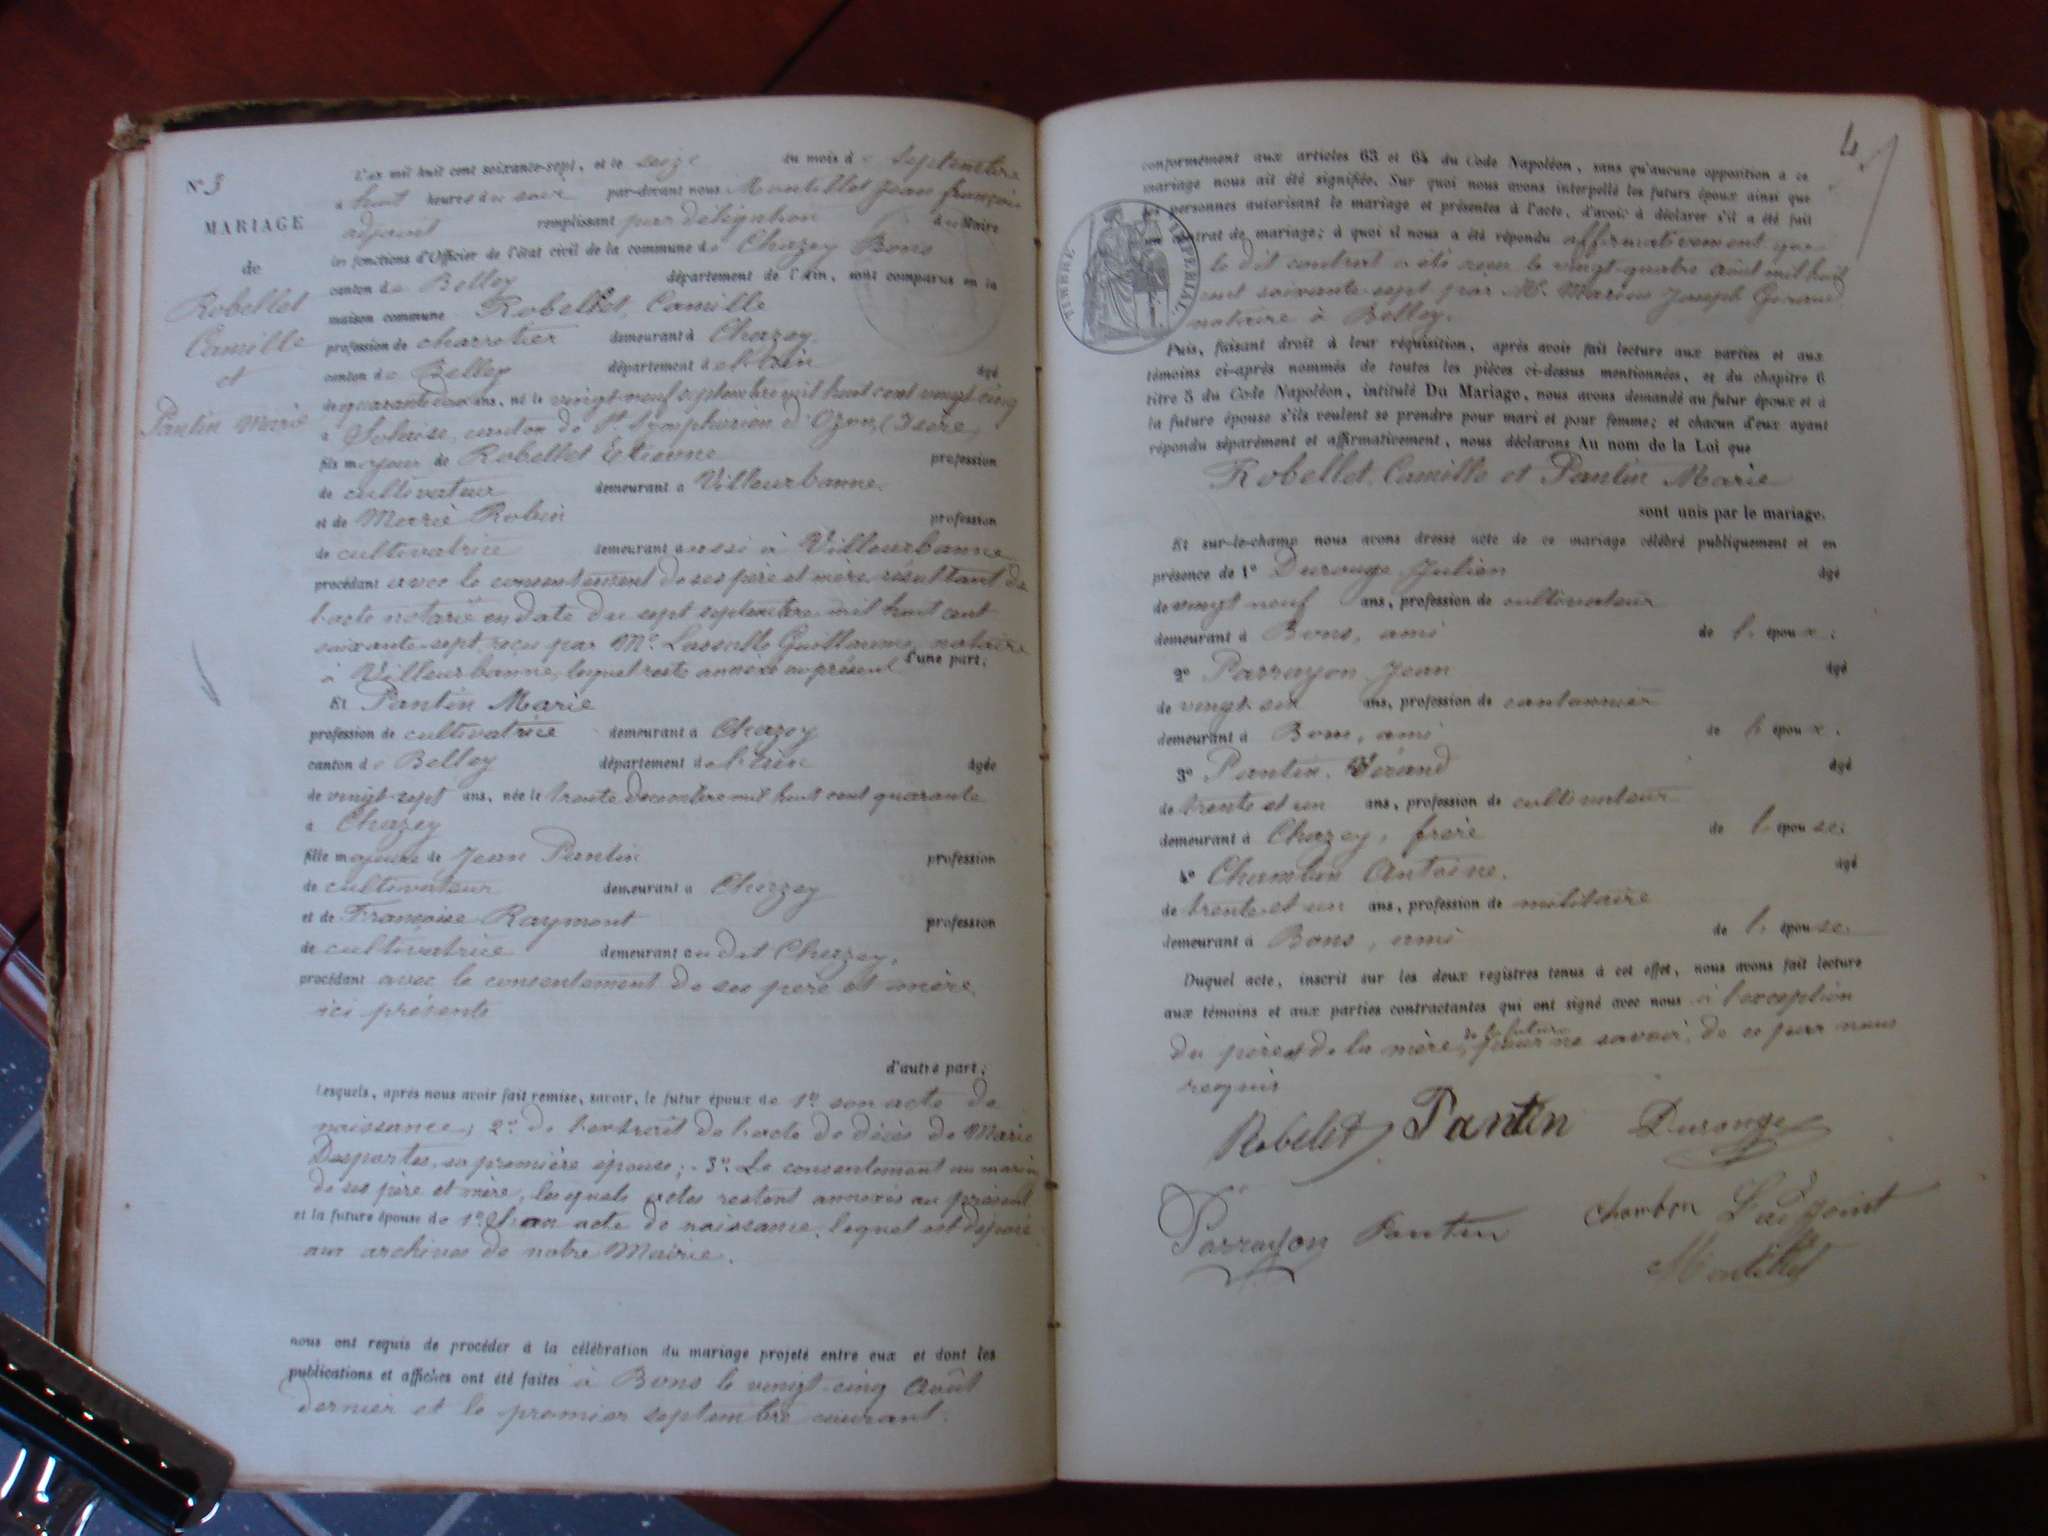 N° 3
MARIAGE
de
Robellet
Camille
et
Pantin Marie
L'an mil huit cent soixante-sept, et le seize du mois de Septembre
à huit heures du soir par-devant nous Montillet Jean françois
adjoint remplissant par délégation du Maire
les fonctions d'Officier de l'état civil de la commune de Chazey Bons
canton de Belley département de l'Ain, sont comparus en la
maison commune Robellet, Camille
profession de charretier demeurant à Chazey
canton de Belley département de l'Ain âgé
de quarante deux ans, né le vingt-neuf septembre mil huit cent vingt-cinq
à Solaise, canton de St Symphorien d'Ozon, (Isère)
fils majeur de Robellet Etienne profession
de cultivateur demeurant à Villeurbanne.
et de Marie Robin profession
de cultivatrice demeurant aussi à Villeurbanne
procédant avec le consentement de ses père et mère résultant de
l'acte notarié en date du sept septembre mil huit cent
soixante-sept, reçu par Me Lassalle Guillaume, notaire
à Villeurbanne, lequel reste annexé au présent d'une part;
Et Pantin Marie
profession de cultivatrice demeurant à Chazey
canton de Belley département de l'Ain âgée
de vingt-sept ans, née le trente décembre mil huit cent quarante
à Chazey
fille majeure de Jean Pantin profession
de cultivateur demeurant à Chazey
et de Françoise Raymont profession
de cultivatrice demeurant au dit Chazey,
procédant avec le consentement de ses père et mère
ici présents
d'autre part;
Lesquels, après nous avoir fait remise, savoir, le futur époux de 1° son acte de
naissance; 2° de l'extrait de l'acte de décès de Marie
Desportes, sa première épouse; 3° Le consentement au mariage
de ses père et mère, lesquels actes restent annexés au présent
et la future épouse de 1° son acte de naissance, lequel est déposé
aux archives de notre Mairie.
nous ont requis de procéder à la célébration du mariage projeté entre eux et dont les
publications et affiches ont été faites à Bons le vingt-cinq Août
dernier et le premier septembre courant.
4
conformément aux articles 63 et 64 du Code Napoléon, sans qu'aucune opposition a ce
mariage nous ait été signifiée. Sur quoi nous avons interpellé les futurs époux ainsi que
les personnes autorisant le mariage et présentes à l'acte, d'avoir à déclarer s'il a été fait
un contrat de mariage; à quoi il nous a été répondu affirmativement que
le dit contrat a été reçu le vingt-quatre août mil huit
cent soixante-sept par Me Marius Joseph Giraud
notaire à Belley.
TIMBRE IMPERIAL.
Puis, faisant droit à leur réquisition, après avoir fait lecture aux parties et aux
témoins ci-après nommés de toutes les pièces ci-dessus mentionnées, et du chapitre 6
titre 5 du Code Napoléon, intitulé Du Mariage, nous avons demandé au futur époux et à
la future épouse s'ils veulent se prendre pour mari et pour femme; et chacun d'eux ayant
répondu séparément et affirmativement, nous déclarons Au nom de la Loi que
Robellet, Camille et Pantin Marie
sont unis par le mariage.
Et sur-le-champ nous avons dressé acte de ce mariage célébré publiquement et en
présence de 1° Durouge Julien âgé
de vingt neuf ans, profession de cultivateur
demeurant à Bons, ami de l'époux;
2° Parrayon Jean âgé
de vingt six ans, profession de cantonnier
demeurant à Bons, ami de l'époux.
3° Pantin, Vérand âgé
de trente et un ans, profession de cultivateur
demeurant à Chazey, frère de l'épouse;
4° Chambon Antoine. âgé
de trente et un ans, profession de militaire
demeurant à Bons, ami de l'épouse.
Duquel acte, inscrit sur les deux registres tenus à cet effet, nous avons fait lecture
aux témoins et aux parties contractantes qui ont signé avec nous à l'exception
du père et de la mère de la future pour ne savoir, de ce par nous
requis
Robelet Pantin Durouge
Parrayon Pantin chambon L'adjoint
Montillet